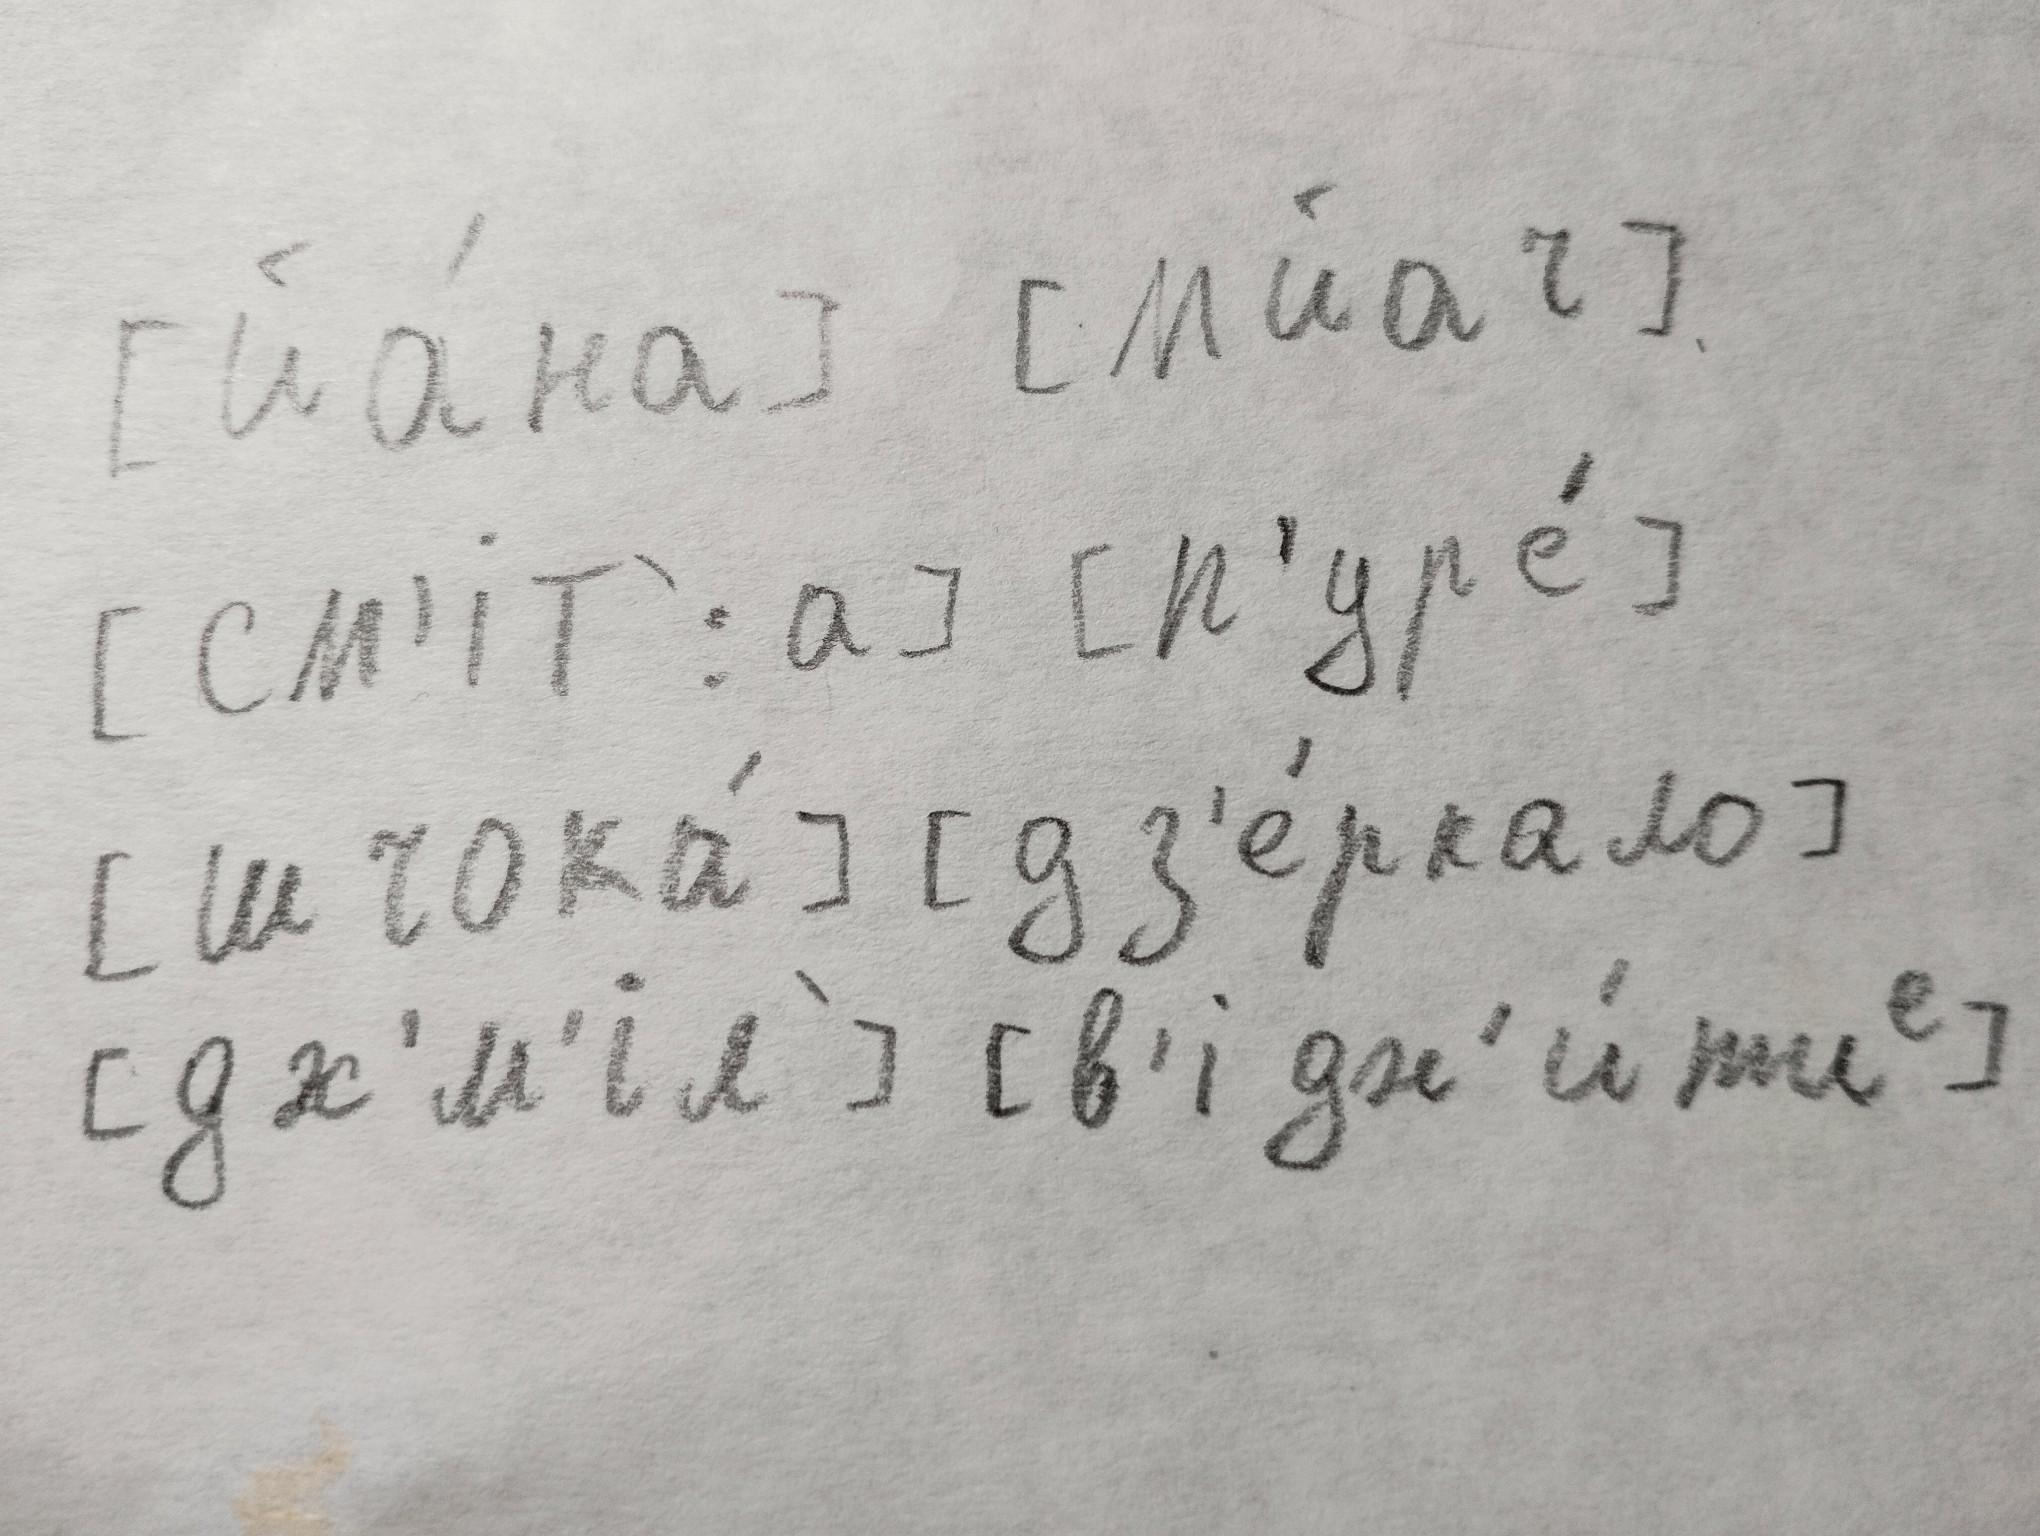 [йа́на] [мйач].
[см'іт`:а] [п'уре́]
[шчока́] [дз'е́ркало]
[дж'м'іл`] [в'ідж'и́тиᵉ]